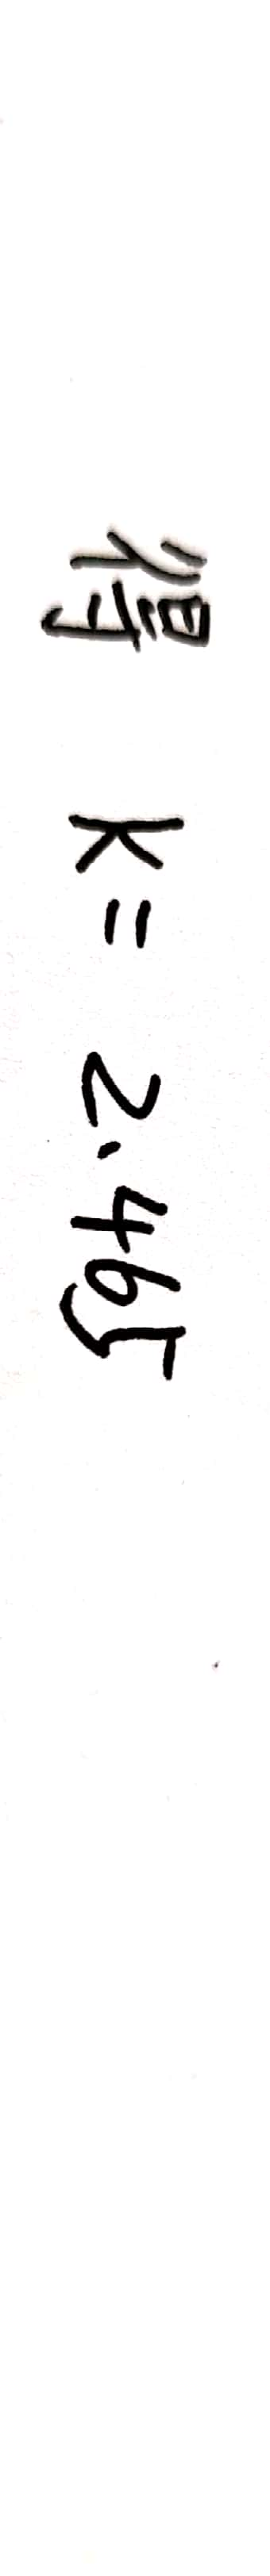 得 K = 2.465